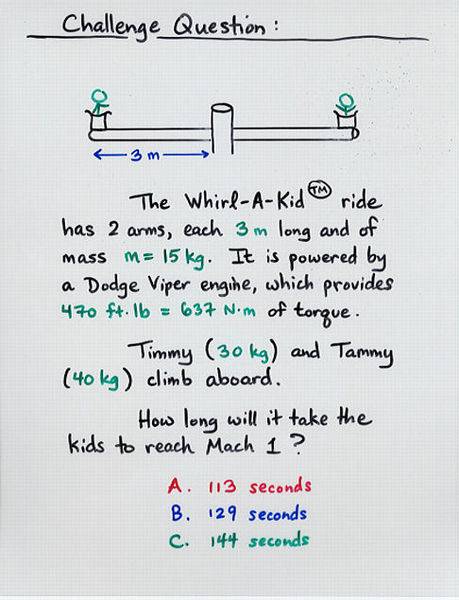 Challenge Question:
3 m
The Whirl-A-Kid™ ride
has 2 arms, each 3 m long and of
mass m = 15 kg. It is powered by
a Dodge Viper engine, which provides
470 ft.lb = 637 N·m of torque.
Timmy (30 kg) and Tammy
(40 kg) climb aboard.
How long will it take the
kids to reach Mach 1?
A. 113 seconds
B. 129 seconds
C. 144 seconds